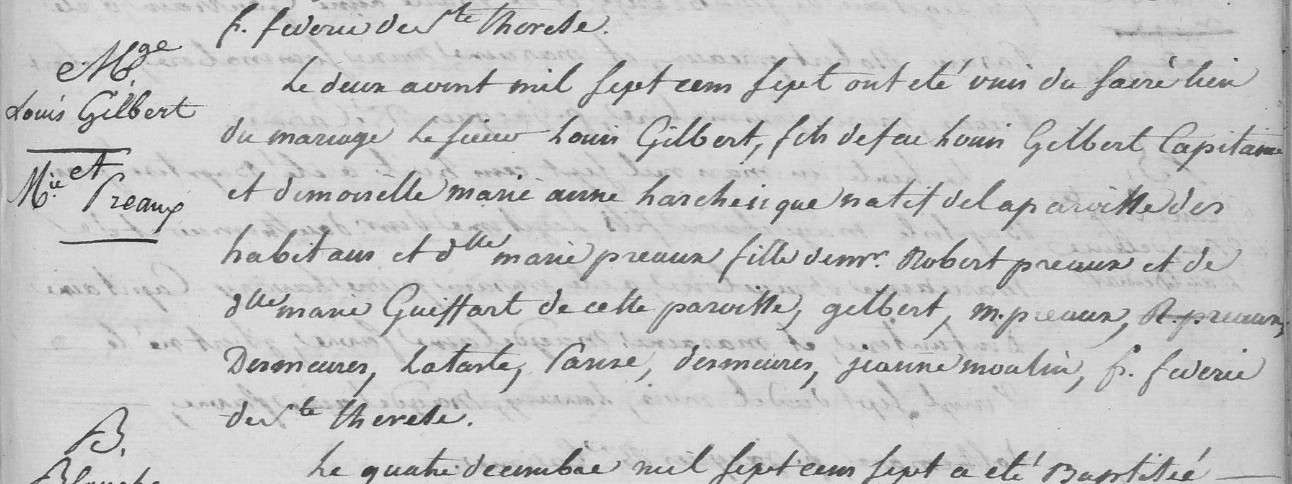 fr. federic de Ste therese.
Mge
Louis Gilbert
et
Mie Preaux
Le deux avint mil sept cens sept ont eté unis du sacré lien
du mariage le sieur Louis Gilbert, fils de feu Louis Gilbert Capitaine
et demoiselle marie anne harchesique natif de la paroisse des
habitans et dlle marie preaux fille de mr. Robert preaux et de
dlle marie Guiffart de cette paroisse, gilbert, m. preaux, R. preaux,
Desmeures, Latarte, Parise, desmeures, jeanne moulin, fr. federic
de Ste therese.
B.
Blanche
Le quatre decembre mil sept cens sept a eté Baptisée